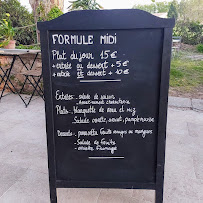 FORMULE MIDI
Plat du jour 15€
+ entrée ou dessert + 5€
+ entrée et dessert + 10€
Entrées - salade de saison
Plats - blanquette de veau et riz
Salade avocat, pamplemousse
Desserts - panacotta fruits rouges ou mangue
- Salade de fruits
- assiette fromage